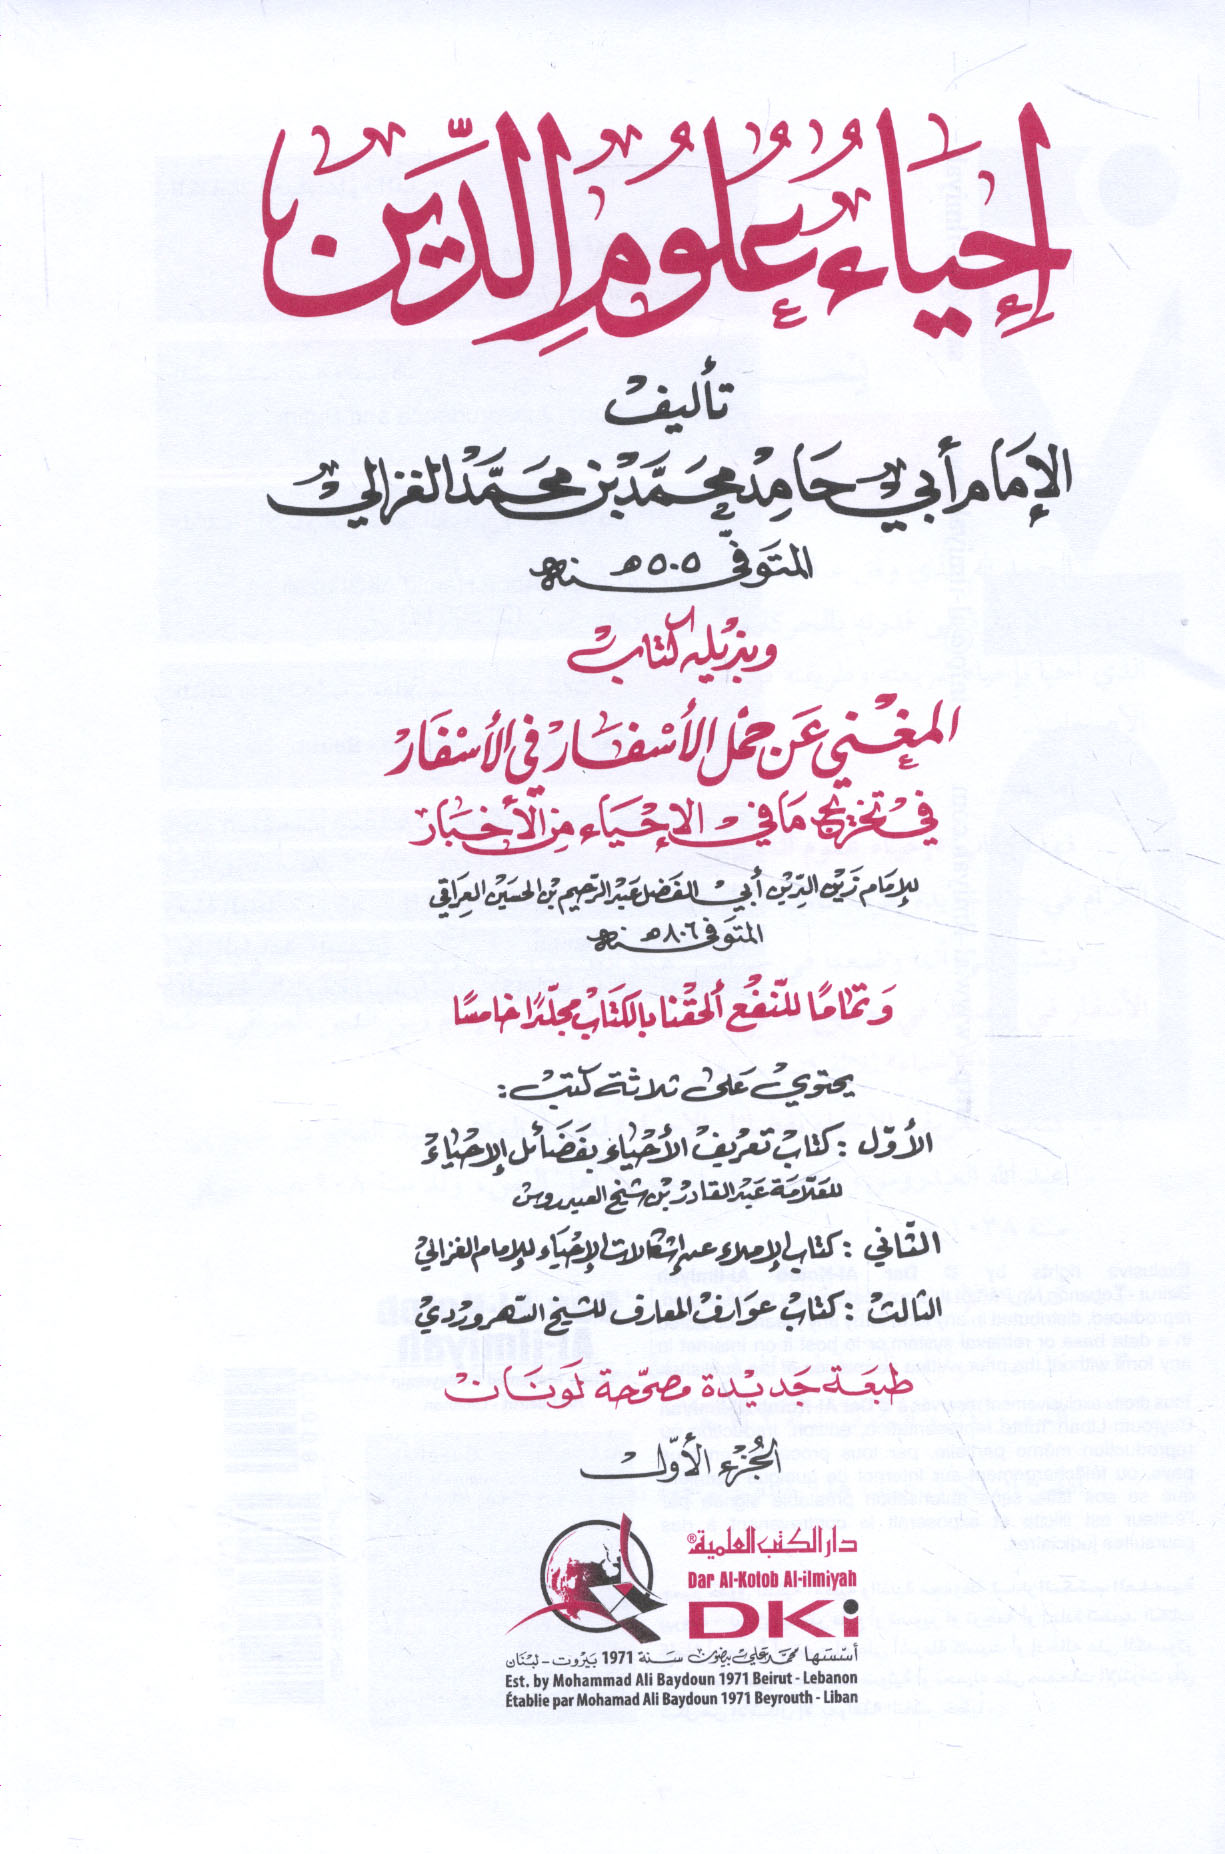 إِحْيَاءُ عُلُومِ الدِّيْن
تأليف
الإِمَام أَبي حَامِد مُحَمَّد بْن مُحَمَّد الغزالي
المتَوَفَّى ٥٠٥ هـ سنة
وبذيله كتاب
المغْني عَن حَمْل الأسْفَار في الأسْفَار
في تخريج مَا في الإحْيَاء مِن الأخبَار
للإمَام زَين الدِّين أبي الفَضل عَبْد الرّحيم بن الحسَين العِراقي
المتوَفى ٨٠٦ هـ سنة
وَتمَامًا للنَّفْع ألحقْنا بالكتَاب مجلّدًا خامسًا
يحتوي عَلى ثلاثة كتب :
الأوّل : كتابُ تعريف الأحْيَاء بفَضَائل الإحْيَاء
للعَلّامَة عَبْد القَادر بْن شيخ العيدروس
الثّاني : كتَاب الإملاء عن إشكالات الإحْيَاء للإمام الغزالي
الثالث : كتَاب عوَارف المعَارف للشيخ السّهروردي
طبعَة جَديدة مصَحّحة لَونَان
الجُزء الأوّل
دار الكتب العلمية®
Dar Al-Kotob Al-ilmiyah
DKi
أسّسَهَا محمّد عَلي بيضون سَنة 1971 بَيروت - لبْنَان
Est. by Mohammad Ali Baydoun 1971 Beirut - Lebanon
Établie par Mohamad Ali Baydoun 1971 Beyrouth - Liban